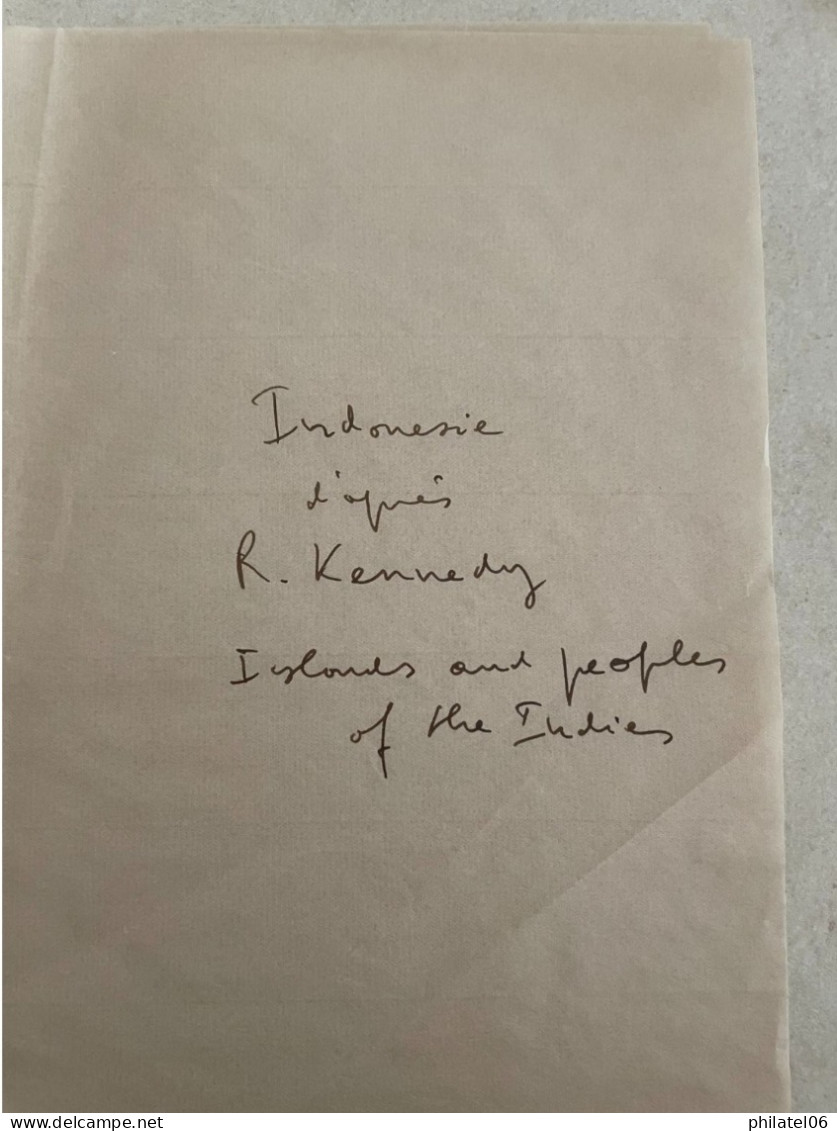 Indonesie
d'après
R. Kennedy
Islands and peoples
of the Indies
delcampe.net
philatel06